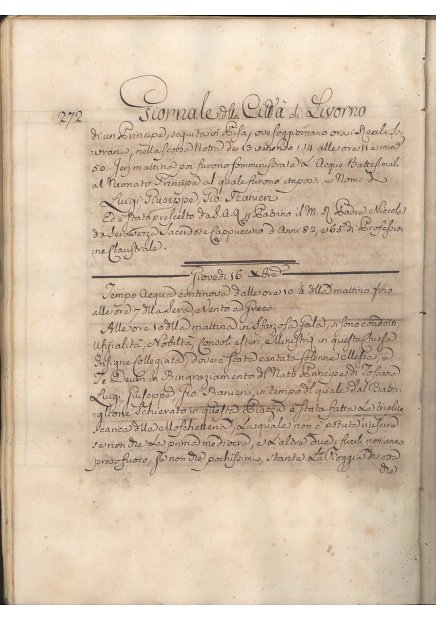 272 Giornale della Città di Livorno
di un Principe, seguita in Pisa, ove soggiornano ora i Reali So-
vrani, nella scorsa Notte de 13 venendo i 14 alle ore 11 e minuti
50. Jeri mattina poi furono somministrate le Acque Battesimali
al Neonato Principe al quale furono imposti i Nomi di
Luigi Giuseppe Gio: Ranieri
Ed è stato prescelto da S.A.R. Padrino il M. R. Padre Niccola
da Seravezza Sacerdote Cappuccino d'Anni 82, e 65 di Professio-
ne Claustrale.
Giovedì 16
Tempo Acqua continova dalle ore 10 1/4 della mattina fino
alle ore 7 della Sera, Vento a Greco.
Alle ore 10 della mattina in Sfarzosa Gala, si sono condotti
Ufizialità, Nobiltà, Consoli esteri, e Ministri in questa Chiesa
Insigne Collegiata dove è stata cantata Solenne Messa, e
Te Deum in Ringraziamento del Nato Principe di Toscana
Luigi Giuseppe Gio: Ranieri, in tempo del quale dal Batta-
glione Schierato in questa Piazza è stata fatta la triplice
Scarica della Moschetteria, la quale non è potuta riuscire
se non che la prima mediocre, e l'altre due i fucili non anno
preso fuoco, se non che pochissimi, stante la Pioggia dirotta
che